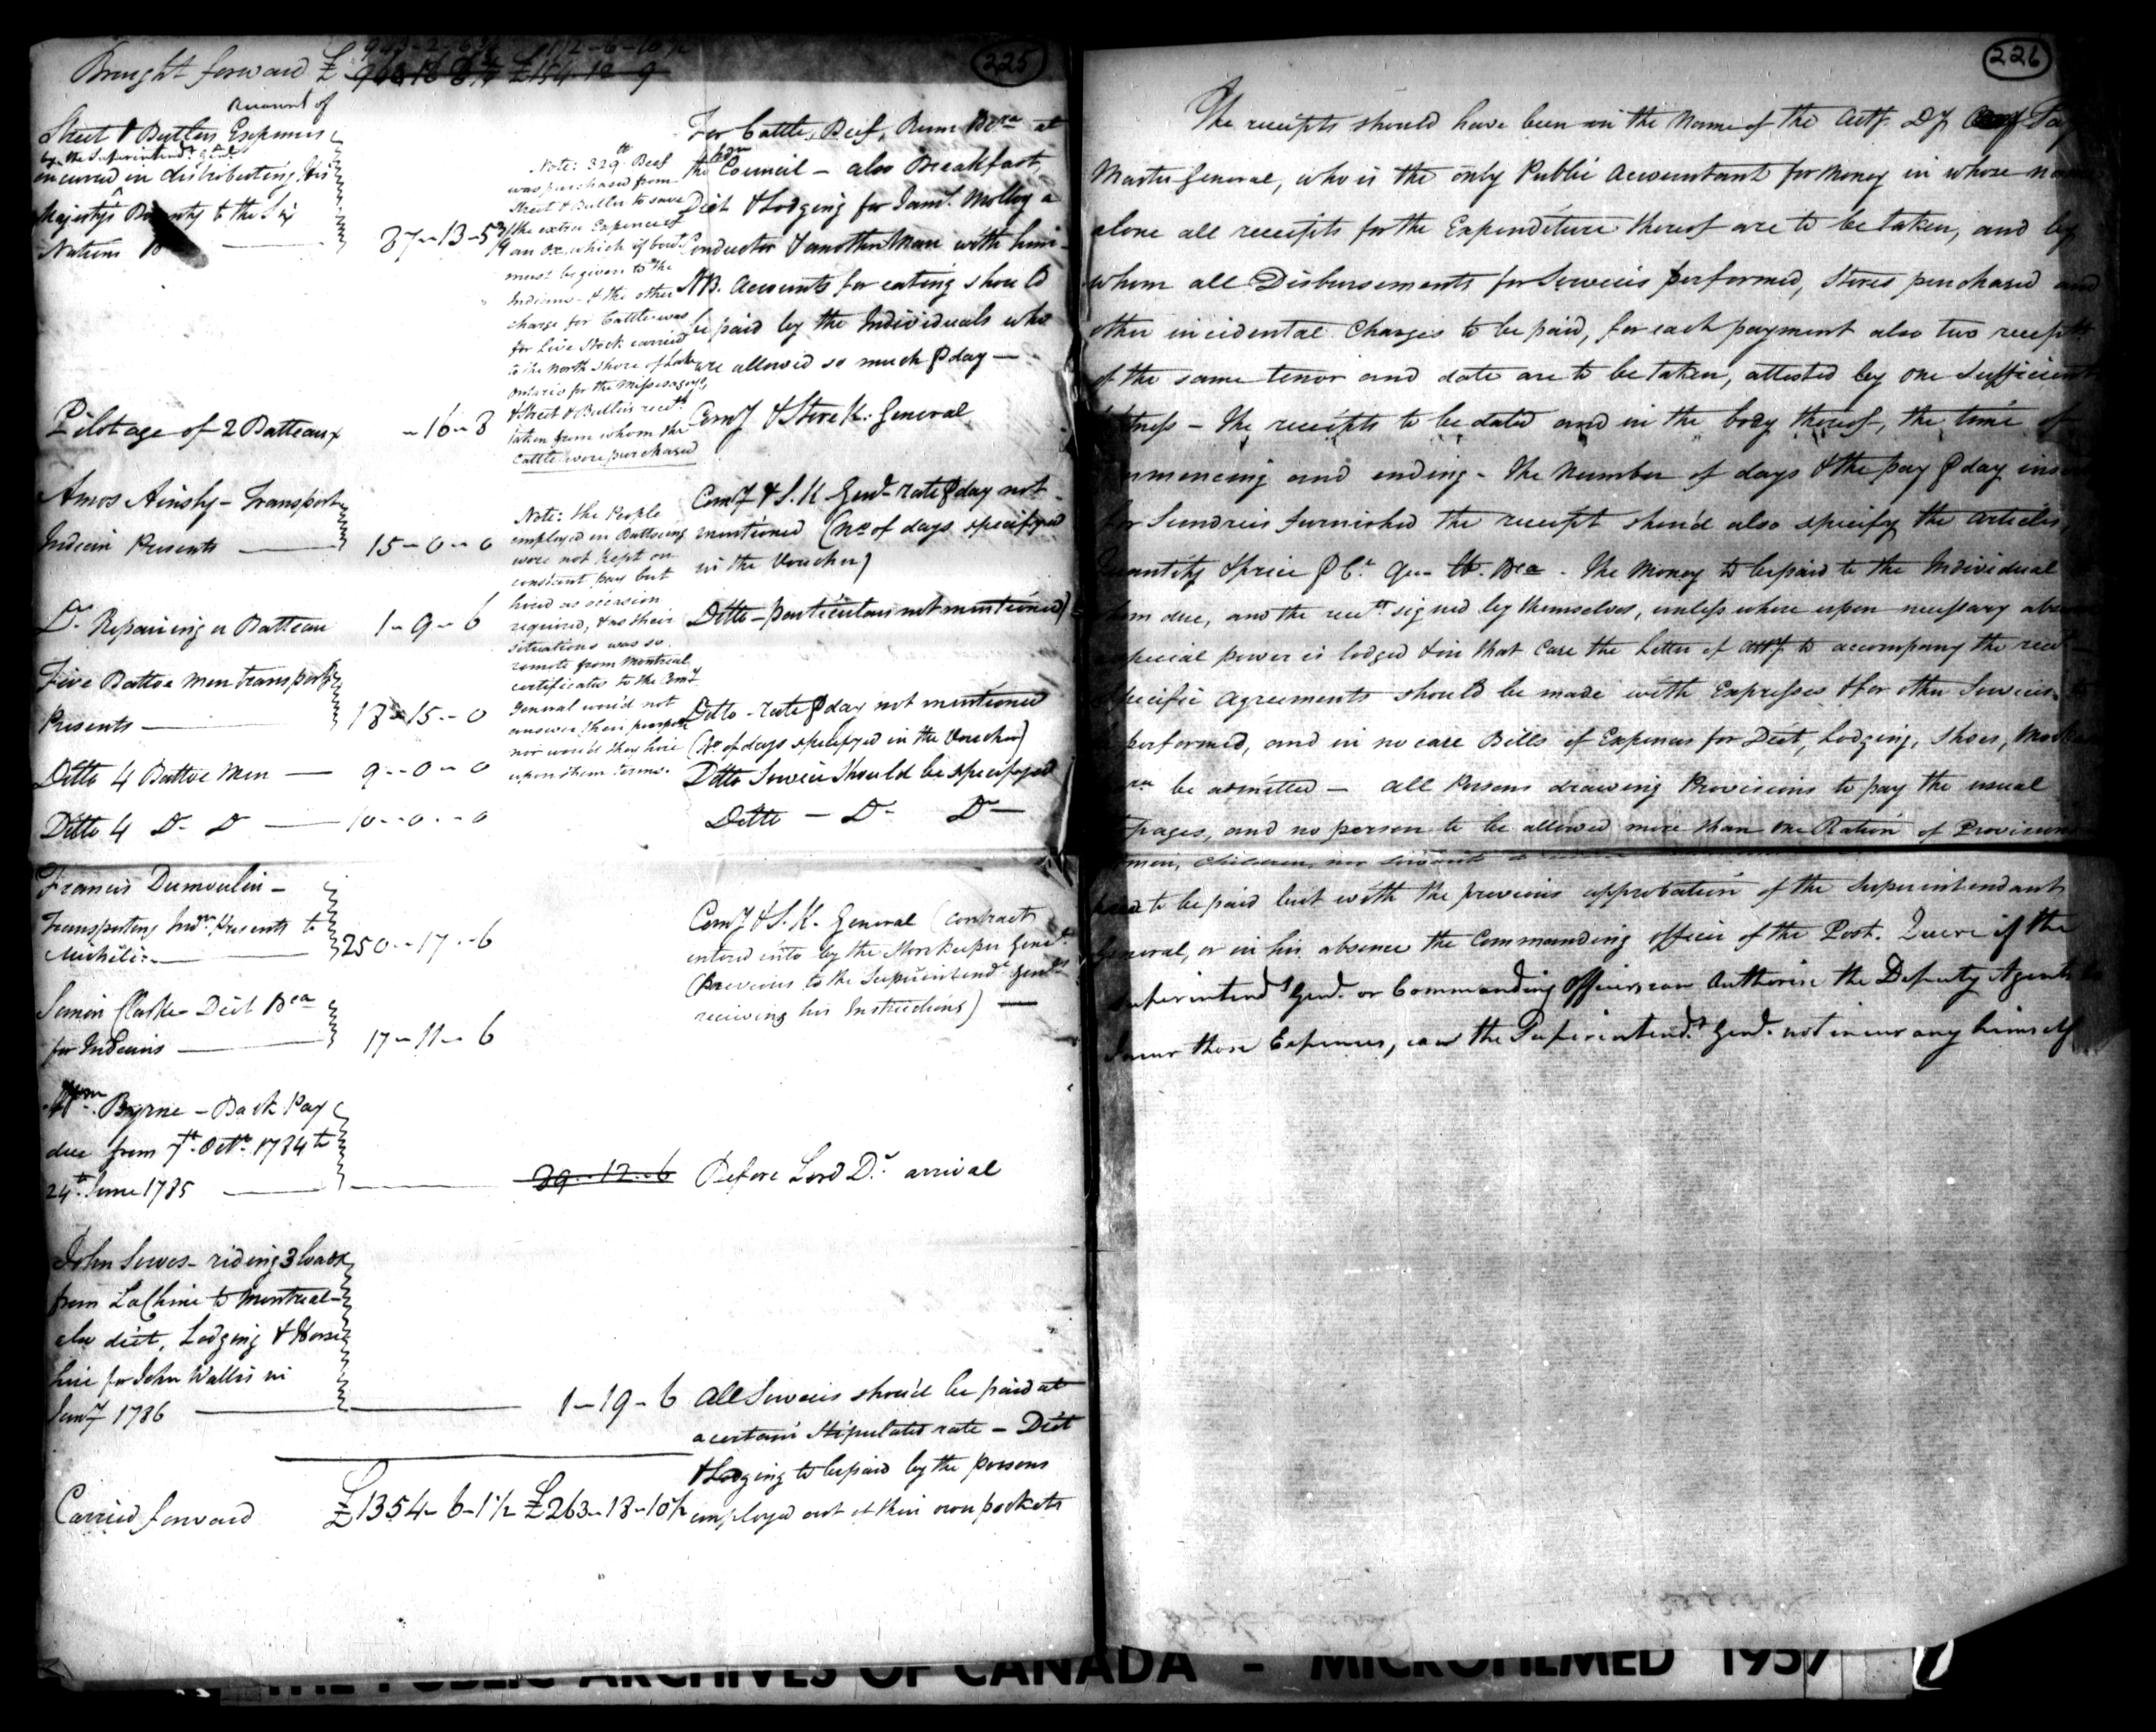 225
Brought forward £ 943-2-6¾ £ 112-6-10½
968-18-8¼ £154-18-9
Account of
Street & Butlers Expences
by the Superintendt. Genl.
incurred in distributing His
Majesty's Bounty to the Six
Nations 87-13-5¾
Note: 329 lb Beef
was purchased from
Street & Butler to save
the extra Expence of
an Ox, which if bout
must be given to the
Indians - & the other
charge for Cattle was
for Live Stock carried
to the North Shore of Lake
Ontario for the Missesagoes,
& Street & Butlers rect.
taken from whom the
Cattle were purchased
For Cattle, Beef, Rum &ca at
the Council - also Breakfast,
Diet & Lodging for Jams. Molloy a
Conductor & another Man with him -
NB. Accounts for eating should
be paid by the Individuals who
are allowed so much ⅌ day -
Pilotage of 2 Batteaux - 16 - 8
Comy & Store K: General
Amos Ainsly - Transportg
Indian Presents 15-0-0
Note: the People
employed in Batteaus
were not kept on
constant pay but
hired as occasion
required, & as their
situations was so
remote from Montreal
certificates to the Comy
General would not
answer their purpose
nor would they hire
upon them terms.
Comy & S. K. Genl - rate ⅌ day not
mentioned (No. of days specifyed
in the Voucher)
Do. Repairing a Batteau 1-9-6
Ditto - particulars not mentioned)
Five Battoe Men transportg
Presents 18-15-0
Ditto - rate ⅌ day not mentioned
(No. of days specifyed in the Voucher)
Ditto 4 Battoe Men 9-0-0
Ditto Service should be specifyed
Ditto 4 Do Do 10-0-0
Ditto - Do - Do -
Francis Dumoulin -
Transporting Indn. Presents to
Michili: 250-17-6
Comy & S. K. General (contract
entered into by the Storekeeper Genel.
(Previous to the Superintendt. Genls
receiving his Instructions)
Simon Clarke - Diet &ca
for Indians 17-11-6
Wm. Byrne - Back Pay
due from 7th. Octr. 1784 to
24th. June 1785 29-12-6 Before Lord D.'s arrival
John Sewes - riding 3 loads
from LaChine to Montreal -
also diet, Lodging & Horse
hire for John Wallis in
Jany 1786 1-19-6
All Services should be paid at
a certain stipulated rate - Diet
& Lodging to be paid by the persons
employed out of their own pockets
Carried forward £1354-6-1½ £263-18-10½
226
The receipts should have been in the Name of the Actg. Dy Pay
Master General, who is the only Public Accountant for Money in whose name
alone all receipts for the Expenditure thereof are to be taken, and by
whom all Disbursements for Services performed, Stores purchased and
other incidental Charges to be paid, for each payment also two receipts
of the same tenor and date are to be taken, attested by one Sufficient
Witness - The receipts to be dated and in the body thereof, the time of
commencing and ending - the Number of days & the pay ⅌ day
for Sundries furnished the receipt should also specify the articles,
Quantity & price ⅌ Ct. Qr. lb. &ca - The Money to be paid to the Individual
whom due, and the rects signed by themselves, unless where upon necessary
special power is lodged & in that case the Letter of atty to accompany the rect -
Specific Agreements should be made with Expresses & for other Services
performed, and in no case Bills of Expences for Diet, Lodging, Shoes,
&ca be admitted - All Persons drawing Provisions to pay the usual
Stopages, and no person to be allowed more than one Ration of Provisions
women, children, nor servants
to be paid but with the previous approbation of the Superintendant
General, or in his absence the Commanding officer of the Post. Quere if the
Superintendt Genl. or Commanding Officers can Authorise the Deputy Agents to
Incur those Expences, can the Superintendt. Genl. not incur any himself
THE PUBLIC ARCHIVES OF CANADA - MICROFILMED 1957